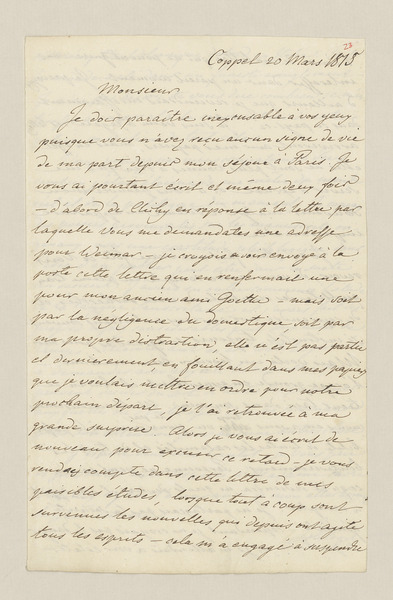 23
Coppet 20 Mars 1815.
Monsieur
Je dois paraître inexcusable à vos yeux
puisque vous n'avez reçu aucun signe de vie
de ma part depuis mon séjour à Paris. Je
vous ai pourtant écrit et même deux fois
— d'abord de Clichy en réponse à la lettre par
laquelle vous me demandates une adresse
pour Weimar — je croyois avoir envoyé à la
poste cette lettre qui en renfermait une
pour mon ancien ami Goethe — mais soit
par la négligence du domestique, soit par
ma propre distraction, elle n'est pas partie
et dernièrement en fouillant dans mes papiers
que je voulais mettre en ordre pour notre
prochain départ, je l'ai retrouvée à ma
grande surprise. Alors je vous ai écrit de
nouveau pour excuser ce retard — je vous
rendois compte dans cette lettre de mes
paisibles études, lorsque tout à coup sont
survenues les nouvelles qui depuis ont agité
tous les esprits — cela m'a engagé à suspendre